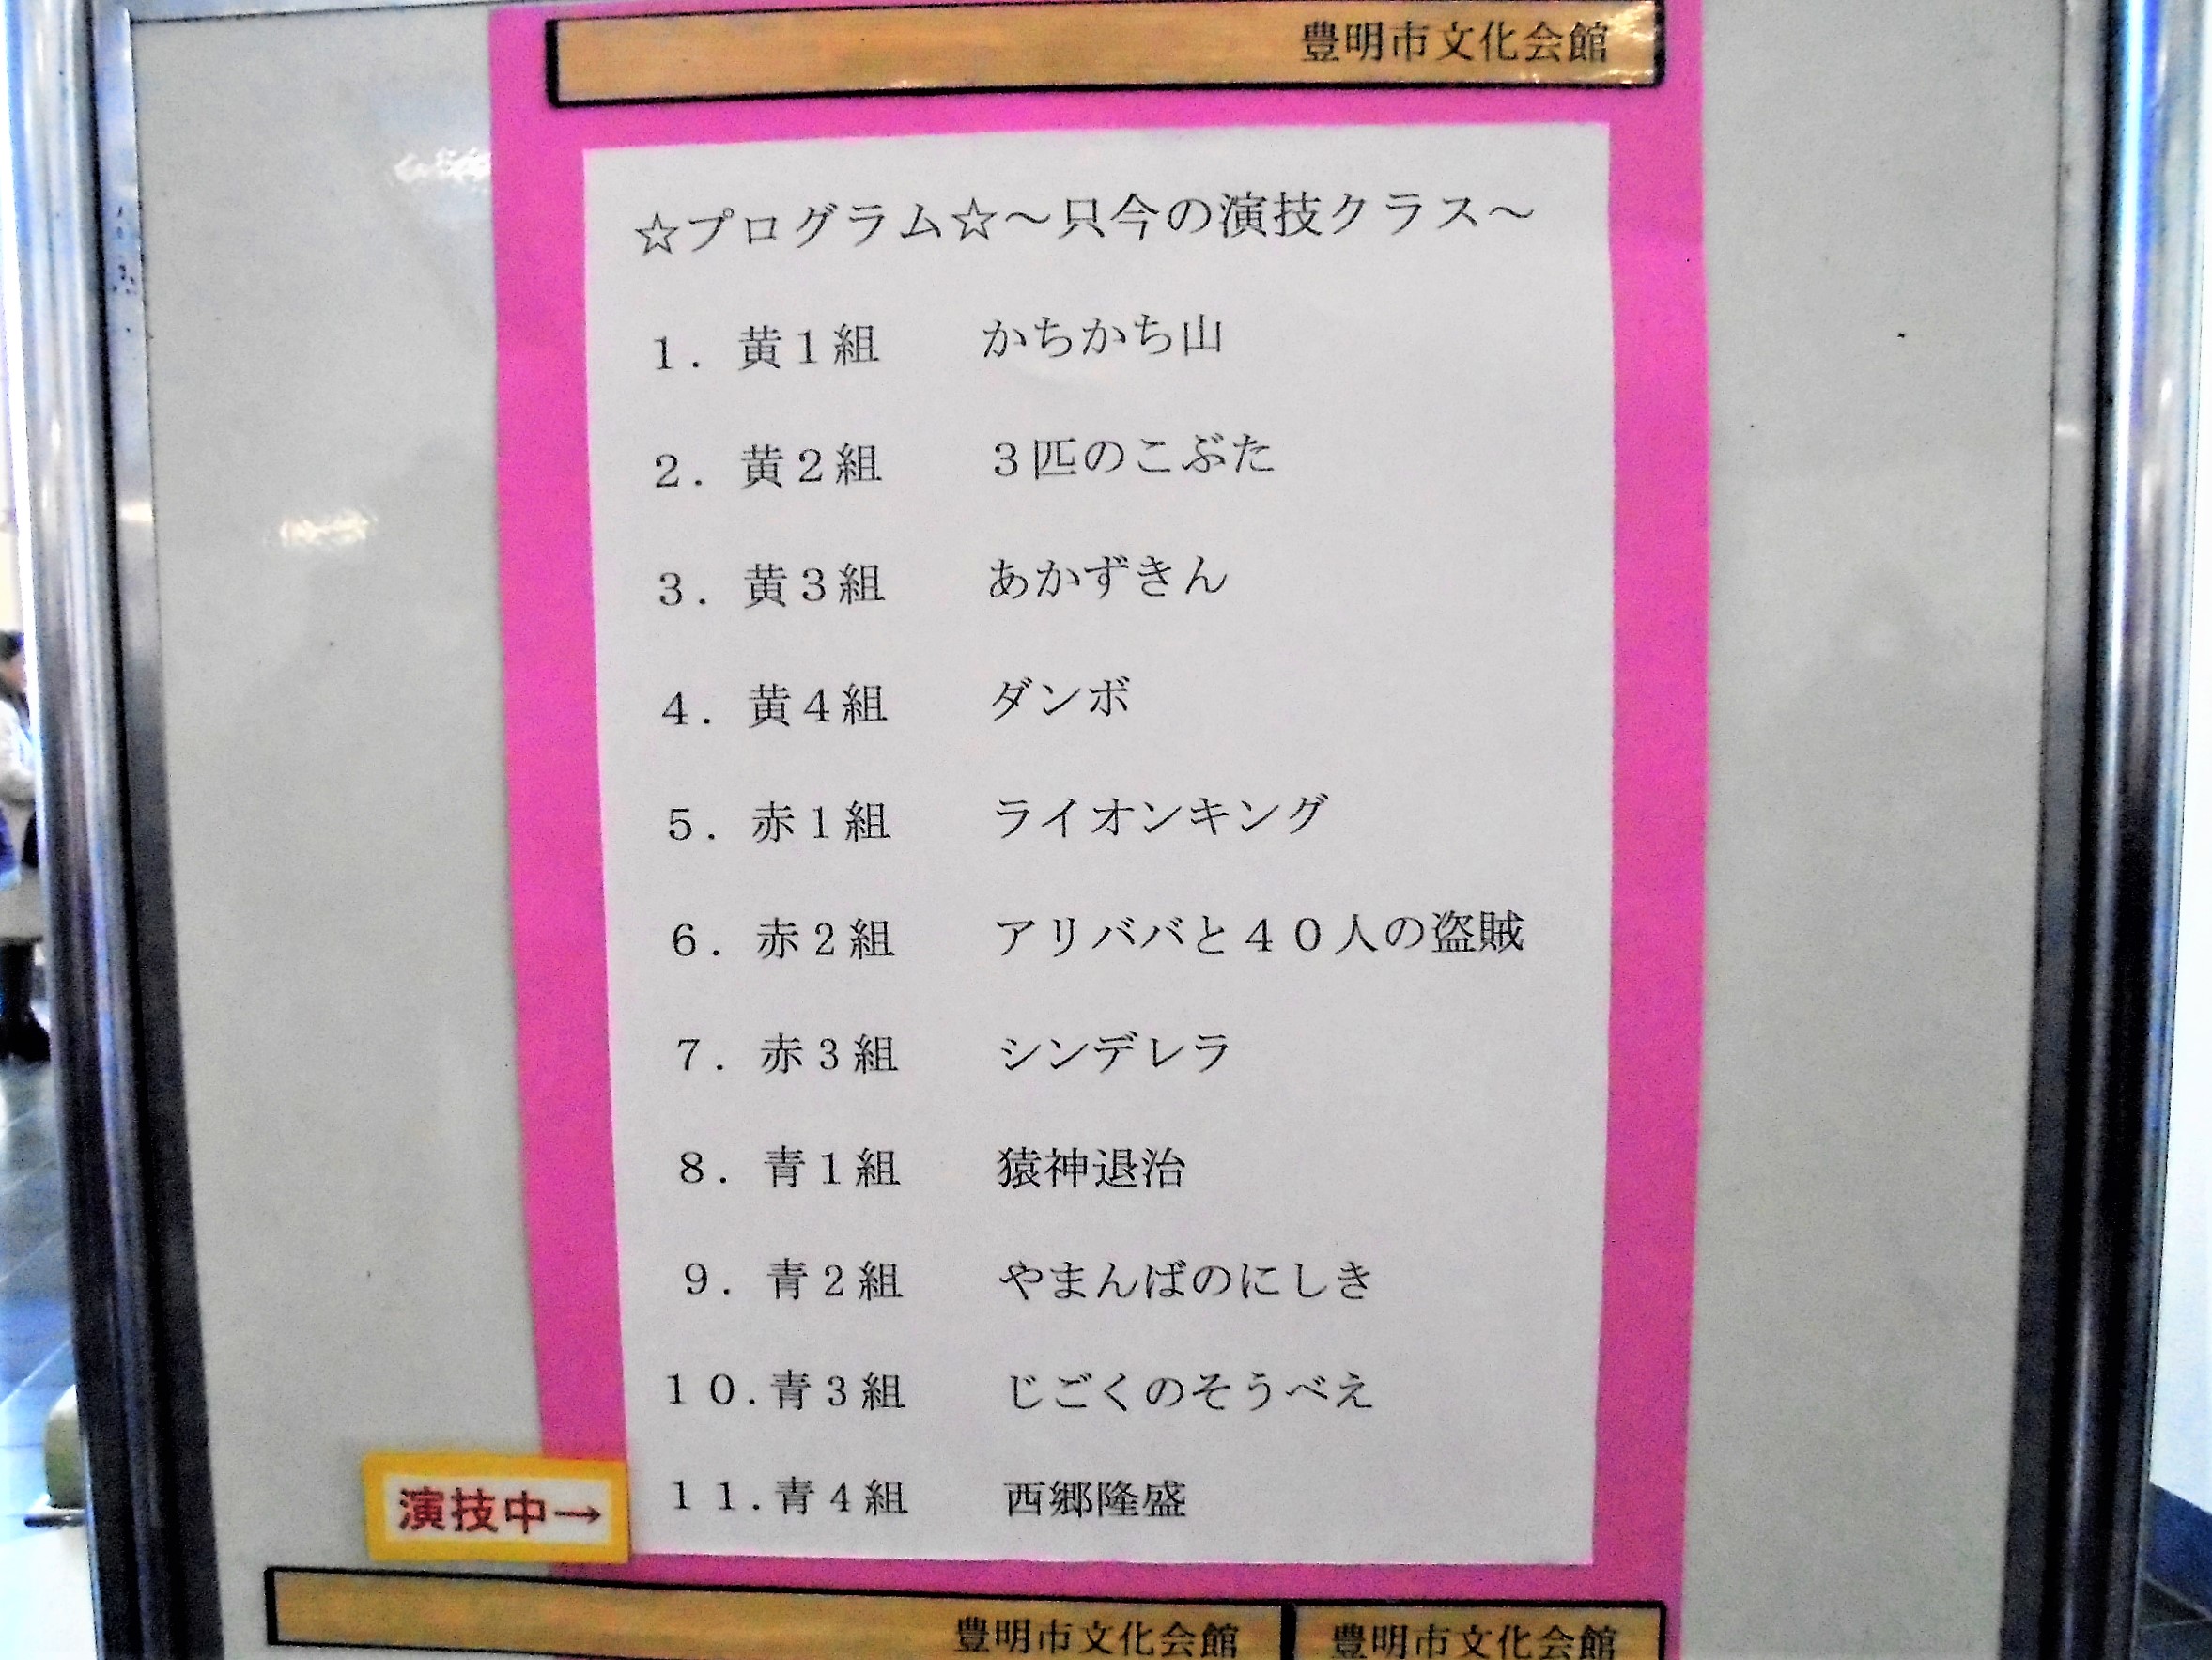 豊明市文化会館
☆プログラム☆～只今の演技クラス～
1. 黄1組 かちかち山
2. 黄2組 3匹のこぶた
3. 黄3組 あかずきん
4. 黄4組 ダンボ
5. 赤1組 ライオンキング
6. 赤2組 アリババと40人の盗賊
7. 赤3組 シンデレラ
8. 青1組 猿神退治
9. 青2組 やまんばのにしき
10. 青3組 じごくのそうべえ
演技中→ 11. 青4組 西郷隆盛
豊明市文化会館 豊明市文化会館